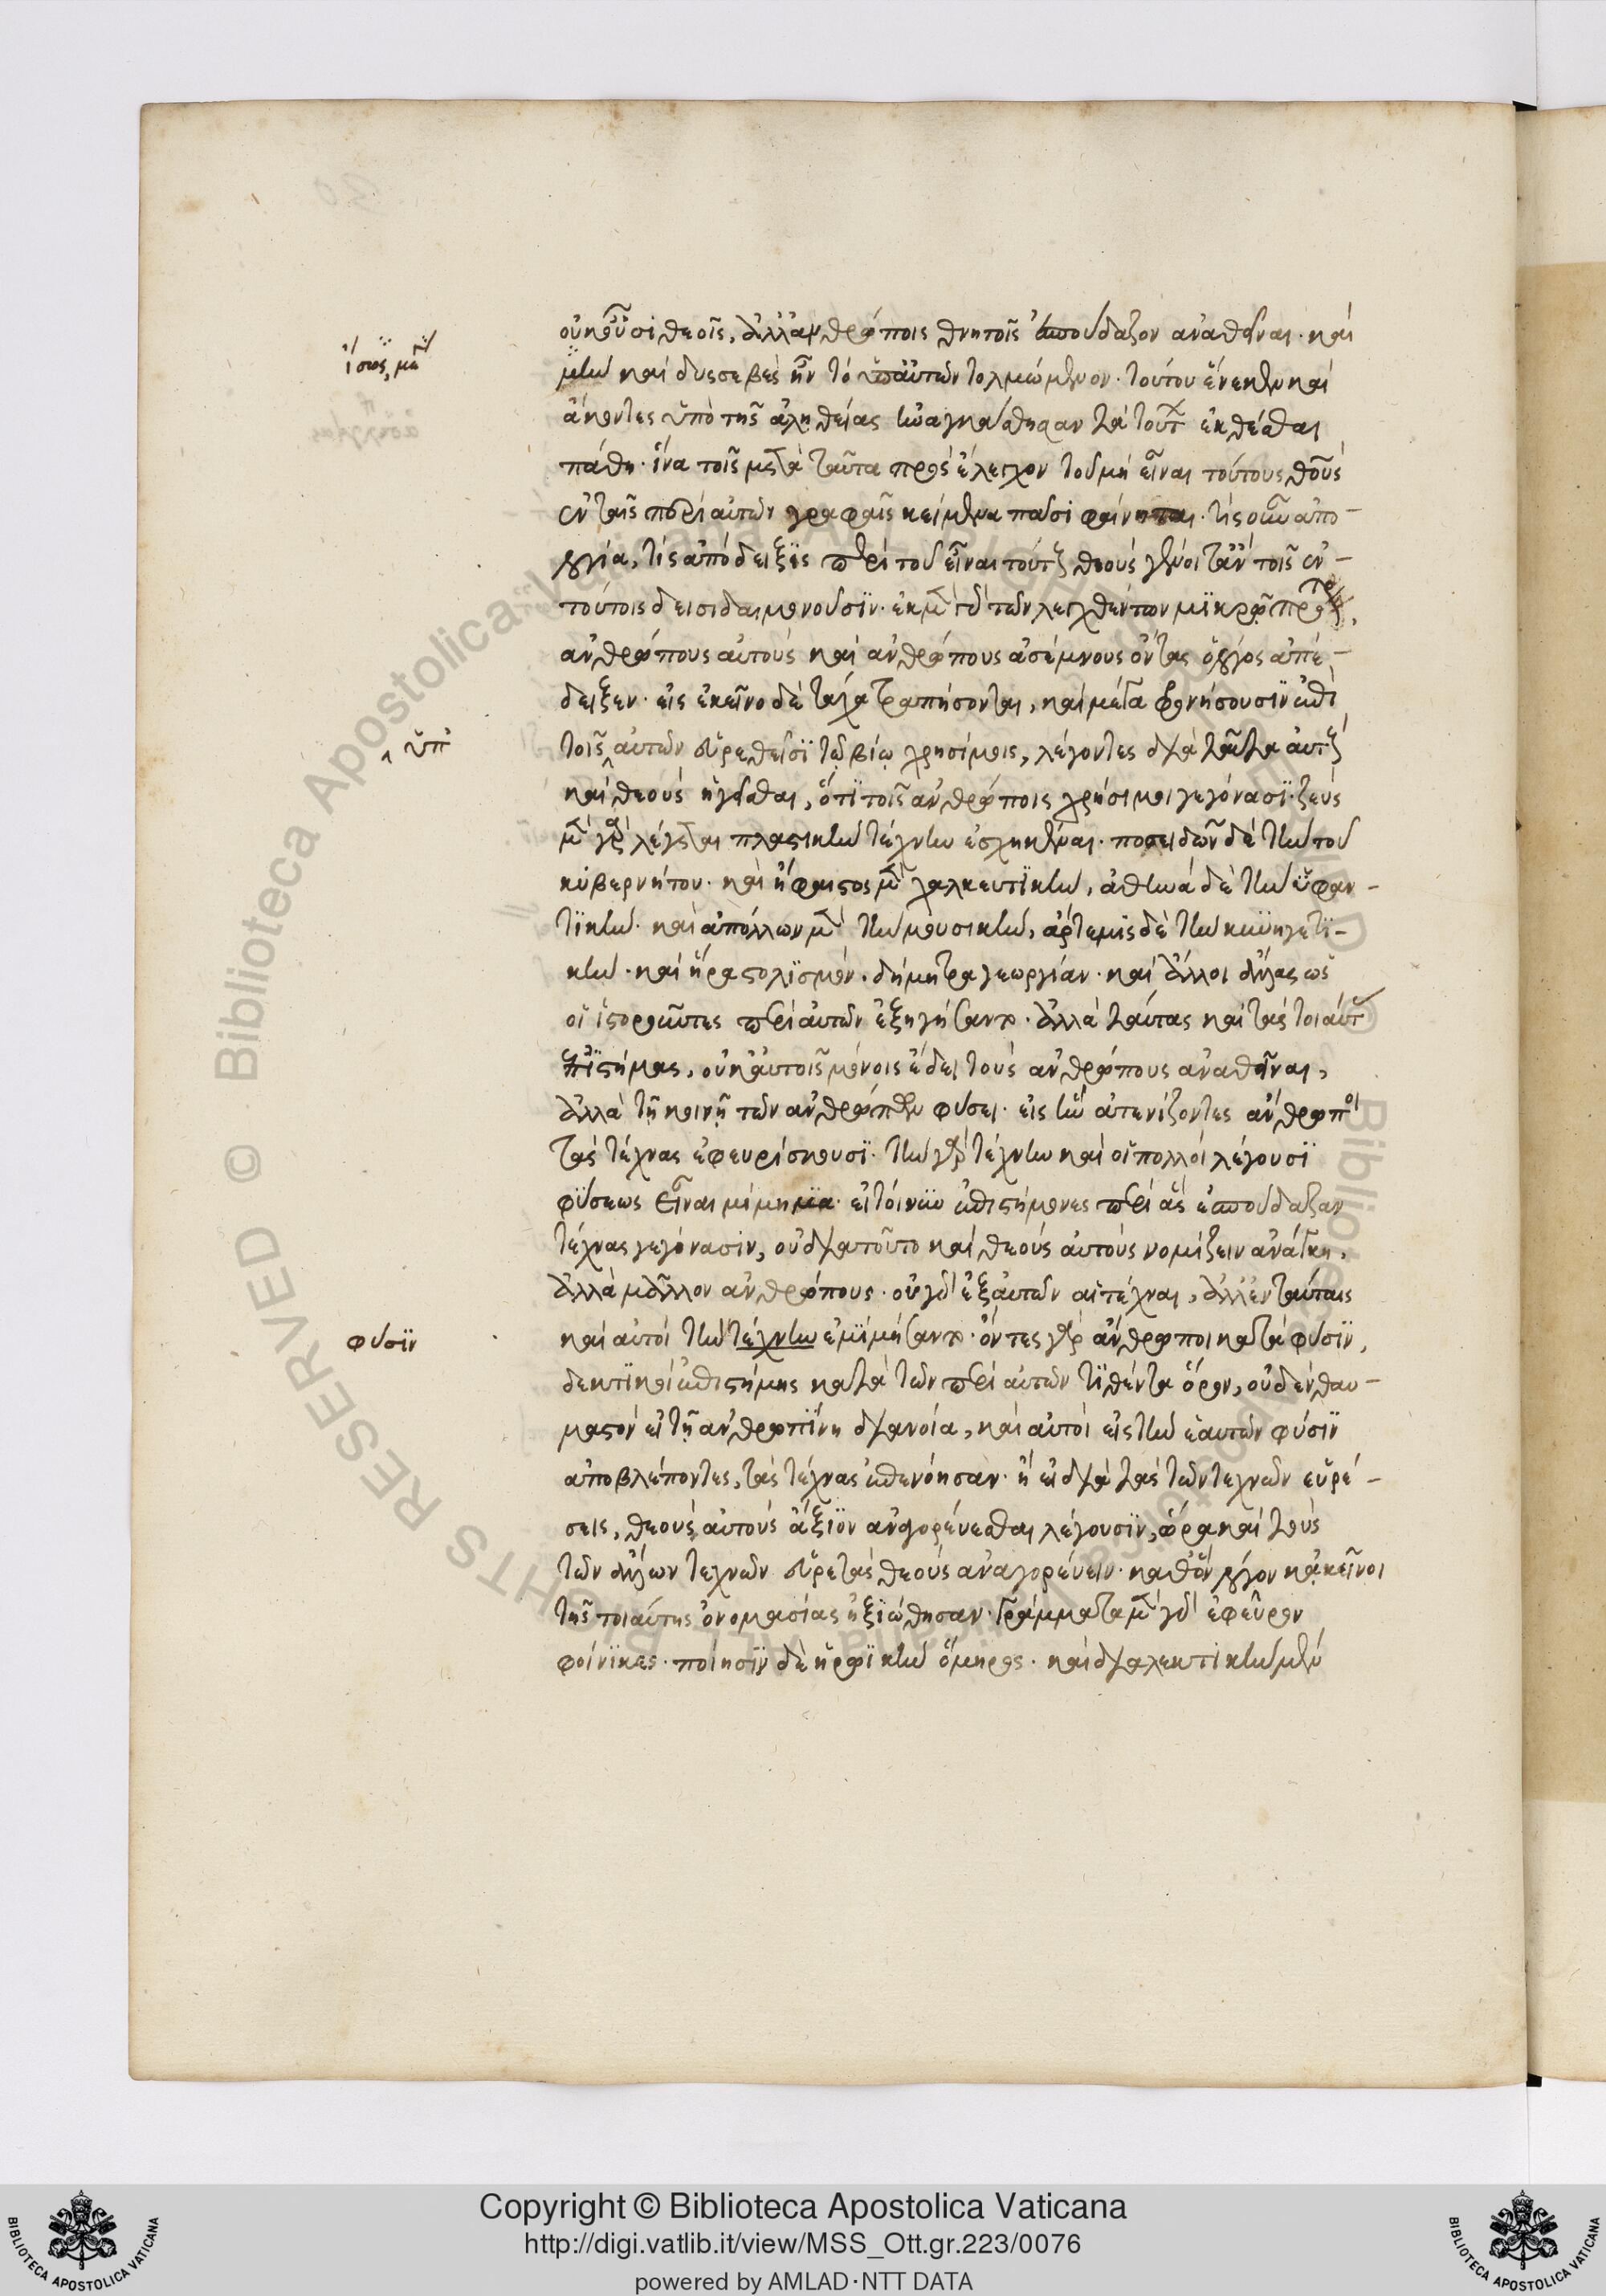 οὐκ οὖσι θεοῖς, ἀλλ' ἀνθρώποις θνητοῖς ἐσπούδαζον ἀναθεῖναι· καὶ
ἴσως, μὲν
μὴν καὶ δυσσεβὲς ἦν τὸ ὑπ' αὐτῶν τολμώμενον· τούτου ἕνεκεν καὶ
ἄκοντες ὑπὸ τῆς ἀληθείας ἠναγκάσθησαν τὰ τούτων ἐκθέσθαι
πάθη· ἵνα τοῖς μετὰ ταῦτα πρὸς ἔλεγχον τοῦ μὴ εἶναι τούτους θεοὺς
ἐν ταῖς περὶ αὐτῶν γραφαῖς κείμενα πᾶσι φαίνηται· τίς οὖν ἀπο-
λογία, τίς ἀπόδειξις περὶ τοῦ εἶναι τούτους θεοὺς γένοιτ' ἂν τοῖς ἐν
τούτοις δεισιδαιμονοῦσιν· ἐκ μὲν γὰρ τῶν λεχθέντων μικρῷ πρότερον,
ἀνθρώπους αὐτοὺς καὶ ἀνθρώπους ἀσέμνους ὄντας ὁ λόγος ἀπέ-
δειξεν· εἰς ἐκεῖνο δὲ τάχα τραπήσονται, καὶ μέγα φρονήσουσιν ἐπὶ
‸ ὑπ'
τοῖς αὐτῶν εὑρεθεῖσι τῷ βίῳ χρησίμοις, λέγοντες διὰ ταῦτα αὐτοὺς
καὶ θεοὺς ἡγεῖσθαι, ὅτι τοῖς ἀνθρώποις χρήσιμοι γεγόνασι· ζεὺς
μὲν γὰρ λέγεται πλαστικὴν τέχνην ἐσχηκέναι· ποσειδῶν δὲ τὴν τοῦ
κυβερνήτου· καὶ ἥφαιστος μὲν χαλκευτικὴν, ἀθηνᾶ δὲ τὴν ὑφαν-
τικήν· καὶ ἀπόλλων μὲν τὴν μουσικὴν, ἄρτεμις δὲ τὴν κυνηγετι-
κήν· καὶ ἥρα στολισμόν· δημήτρα γεωργίαν· καὶ ἄλλοι ἄλλας ὡς
οἱ ἱστοροῦντες περὶ αὐτῶν ἐξηγήσαντο· ἀλλὰ ταύτας καὶ τὰς τοιαύτας
ἐπιστήμας, οὐκ αὐτοῖς μόνοις ἔδει τοὺς ἀνθρώπους ἀναθεῖναι,
ἀλλὰ τῇ κοινῇ τῶν ἀνθρώπων φύσει· εἰς ἣν ἀτενίζοντες ἄνθρωποι
τὰς τέχνας ἐφευρίσκουσι· τὴν γὰρ τέχνην καὶ οἱ πολλοὶ λέγουσι
φύσεως εἶναι μίμημα· εἰ τοίνυν ἐπιστήμονες περὶ ἃς ἐσπούδαζαν
τέχνας γεγόνασιν, οὐ διὰ τοῦτο καὶ θεοὺς αὐτοὺς νομίζειν ἀνάγκη,
ἀλλὰ μᾶλλον ἀνθρώπους· οὐ γὰρ ἐξ αὐτῶν αἱ τέχναι, ἀλλ' ἐν ταύταις
φύσιν
καὶ αὐτοὶ τὴν τέχνην ἐμιμήσαντο· ὄντες γὰρ ἄνθρωποι κατὰ φύσιν,
δεκτικοὶ ἐπιστήμης κατὰ τὸν περὶ αὐτῶν τιθέντα ὅρον, οὐδὲν θαυ-
μαστὸν εἰ τῇ ἀνθρωπίνῃ διανοίᾳ, καὶ αὐτοὶ εἰς τὴν ἑαυτῶν φύσιν
ἀποβλέποντες, τὰς τέχνας ἐπενόησαν· ἢ εἰ διὰ τὰς τῶν τεχνῶν εὑρέ-
σεις, θεοὺς αὐτοὺς ἄξιον ἀναγορεύεσθαι λέγουσιν, ὥρα καὶ τοὺς
τῶν ἄλλων τεχνῶν εὑρετὰς θεοὺς ἀναγορεύειν· καθ' ὃν λόγον κἀκεῖνοι
τῆς τοιαύτης ὀνομασίας ἠξιώθησαν· γράμματα μὲν γὰρ ἐφεῦρον
φοίνικες· ποίησιν δὲ ἡρωικὴν ὅμηρος· καὶ διαλεκτικὴν μὲν
Copyright © Biblioteca Apostolica Vaticana
http://digi.vatlib.it/view/MSS_Ott.gr.223/0076
powered by AMLAD·NTT DATA